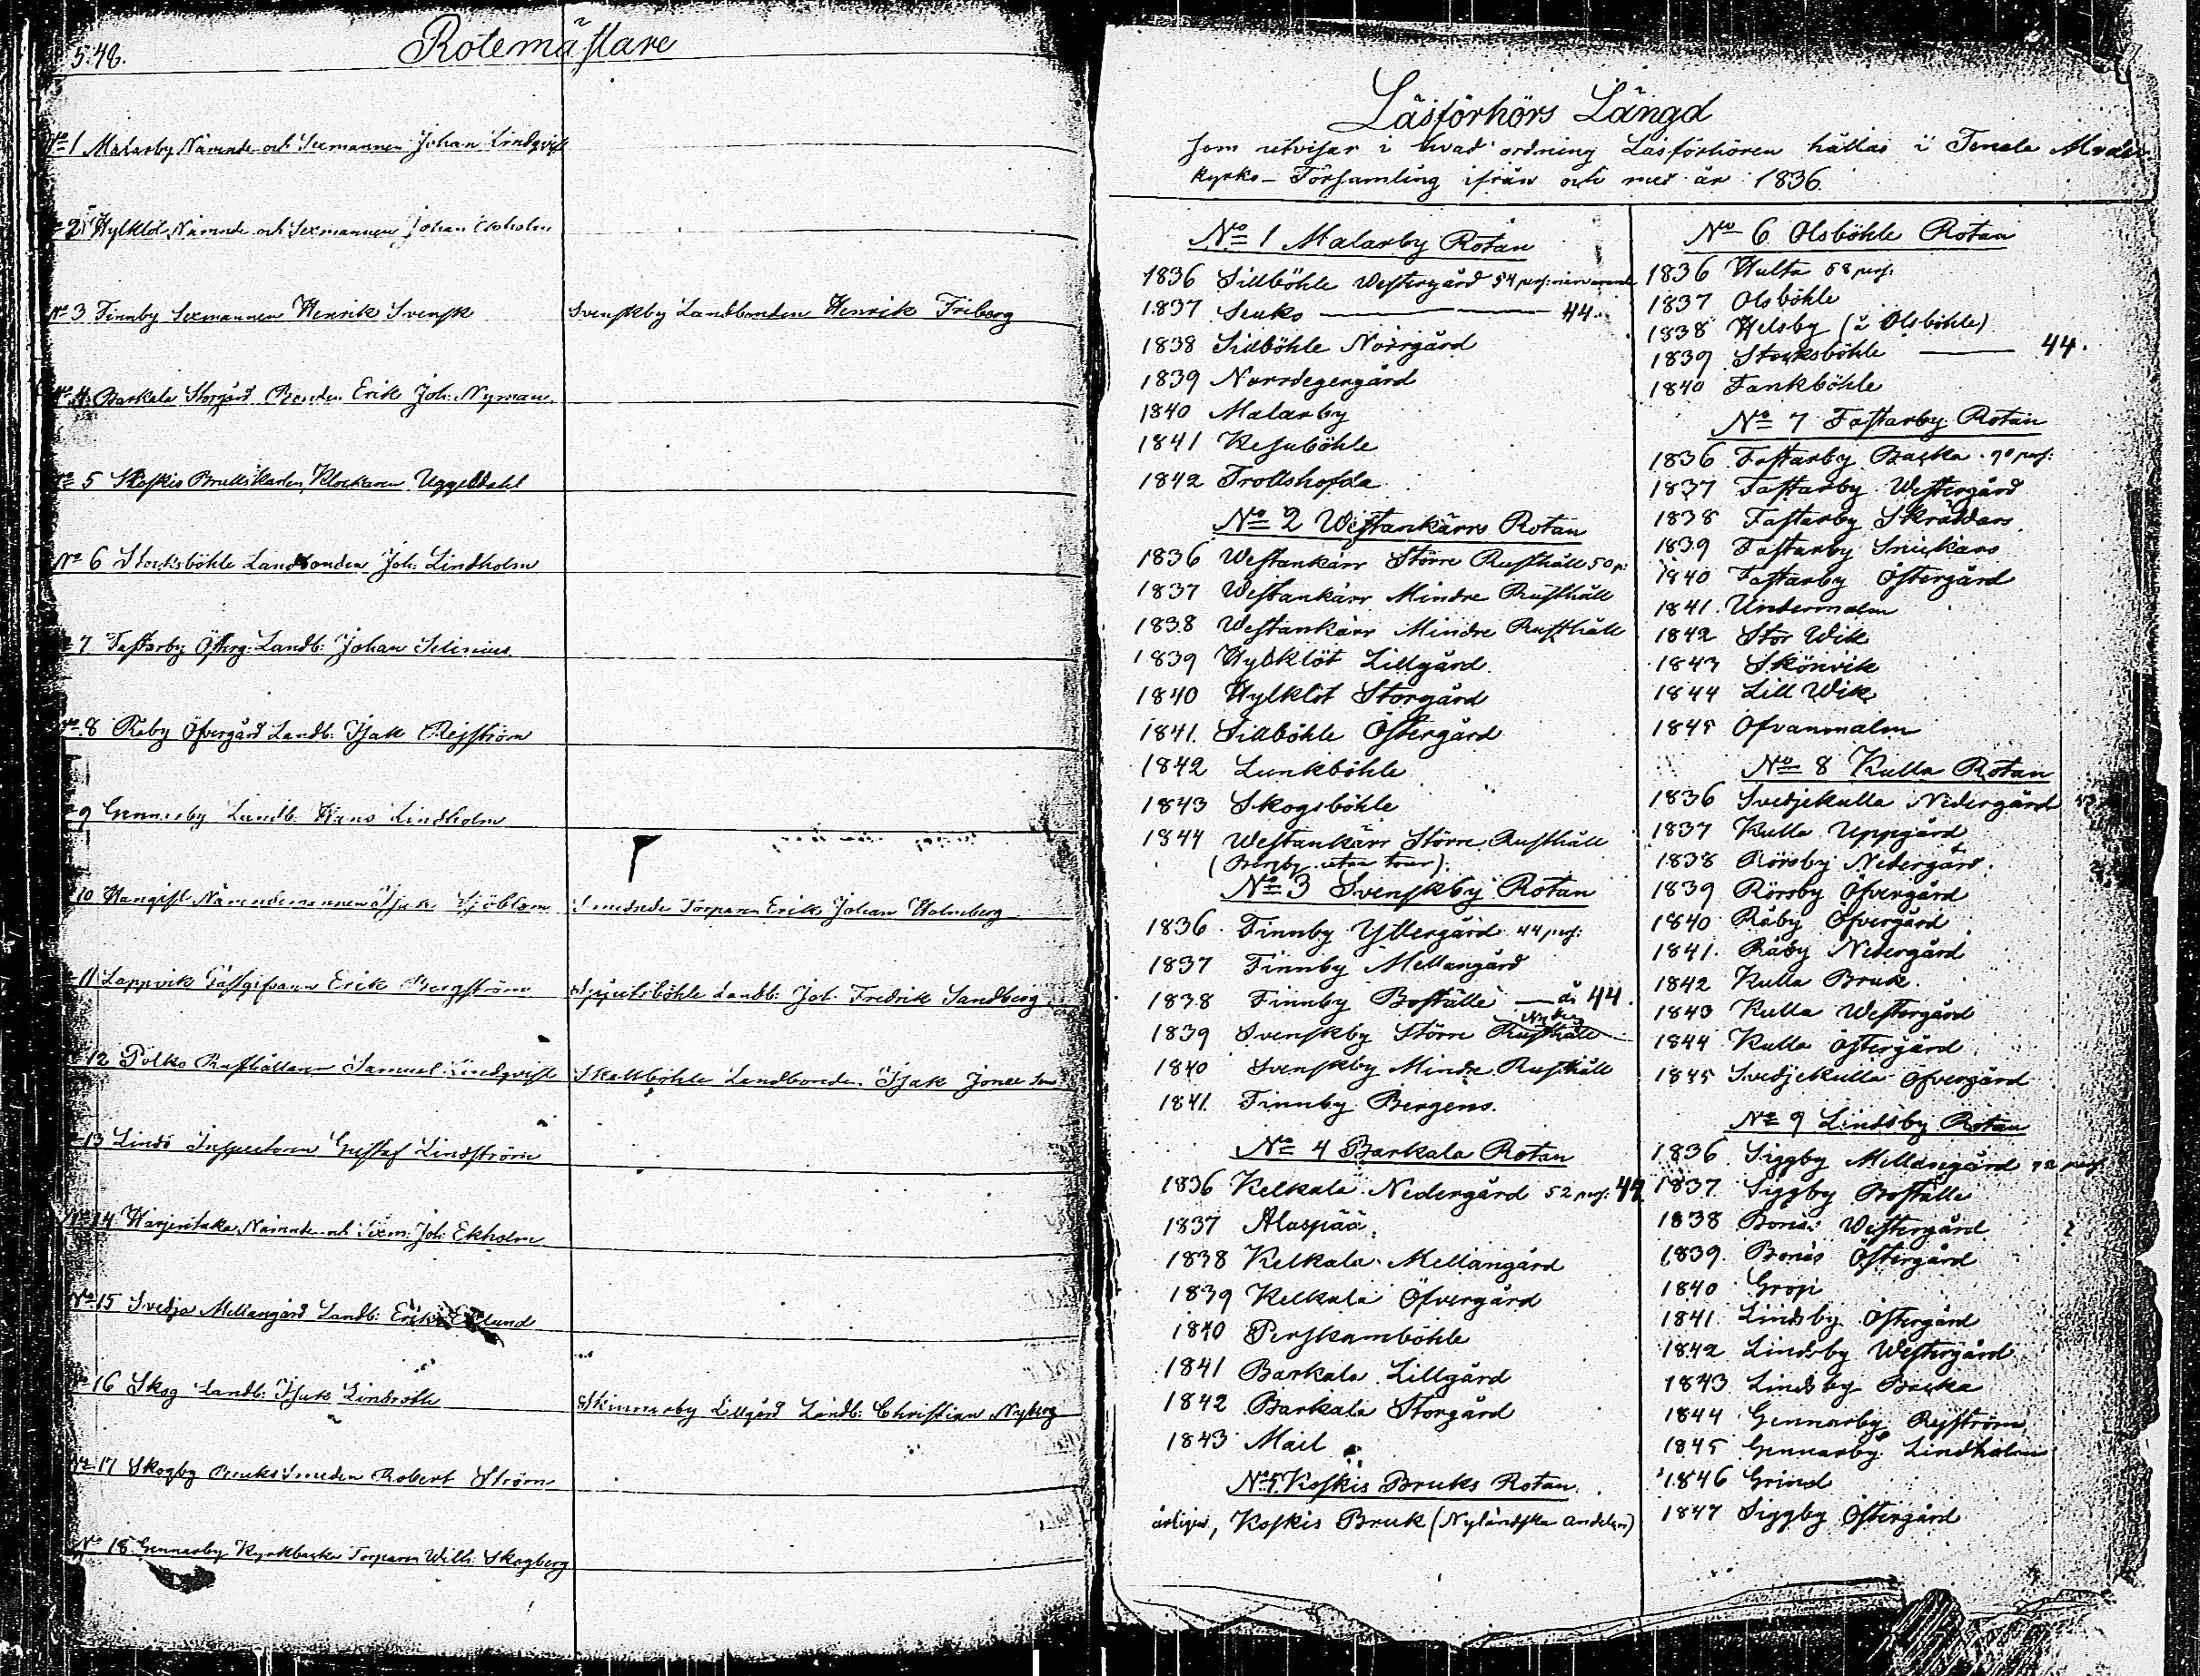 548.
Rotemästare
No 1 Malarby Nämnde och Sexmannen Johan Lindqvist
2 Hylklöt Nämnde och Sexmannen Johan
No 3 Finnby Sexmannen Henrik Svensk
Svenskby Landbonden Henrik Friberg
No 4 Barkala Storgård Bonden Erik Joh. Nyman
No 5 Koskis Bruk Klockaren Uggeldahl
No 6 Stocksböhle Landbonden Joh. Lindholm
7 Fastarby Österg: Landb: Johan Selinius
No 8 Råby Öfvergård Landb: Isak Rejström
9 Gennarby Landb. Hans Lindholm
10 Hangist Nämndemannen Isak Sjöblom
Torparen Erik Johan Holmberg
11 Lappvik Gästgifvaren Erik Bergström
Landb: Joh. Fredrik Sandberg
12 Polko Rusthållaren Samuel Lindqvist
Skallböhle Landbonden Isak Jonas Son
13 Lindö Inspectoren Gustaf Lindström
No 14 Harjentaka Nämnde och Sexm: Joh: Ekholm
No 15 Svedja Mellangård Landb: Erik Eklund
No 16 Skog Landb: Isak Lindroth
Skinnarby Lillgård Landb: Christian Nyberg
No 17 Skogby Bruks Smeden Robert Ström
No 18 Gennarby Kyrkbacka Torparen Wilh. Skogberg
Läsförhörs Längd
som utvisar i hvad ordning Läsförhören hållas i Tenala Moder-
kyrko-Församling ifrån och med år 1836.
No 1 Malarby Rotan
1836 Sillböhle Westergård 54 pers: närvarande
1837 Senko 44.
1838 Sillböhle Norrgård
1839 Norrdegergård
1840 Malarby
1841 Kesuböhle
1842 Trollshofda
No 2 Westankärrs Rotan
1836 Westankärr Större Rusthåll 50 p:
1837 Westankärr Mindre Rusthåll
1838 Westankärr Mindre Rusthåll
1839 Hylklöt Lillgård
1840 Hylklöt Storgård
1841. Sillböhle Östergård
1842 Lunkböhle
1843 Skogsböhle
1844 Westankärr Större Rusthåll
(Bergby utom tour).
No 3 Svenskby Rotan
1836. Finnby Yttergård 44 pers:
1837 Finnby Mellangård
1838 Finnby Boställe — å 44.
1839 Svenskby Större Rusthåll
1840 Svenskby Mindre Rusthåll
1841. Finnby Bergens.
No 4 Barkala Rotan
1836 Kelkala Nedergård 52 pers: 44
1837 Alaspää
1838 Kelkala Mellangård
1839 Kelkala Öfvergård
1840 Perskamböhle
1841 Barkala Lillgård
1842 Barkala Storgård
1843 Mail
No 5 Koskis Bruks Rotan
årligen, Koskis Bruk (Nyländska andelen)
No 6 Olsböhle Rotan
1836 Hulta 58 pers:
1837 Olsböhle
1838 Helsby (å Olsböhle)
1839 Stocksböhle — 44.
1840 Fankböhle
No 7 Fastarby Rotan
1836 Fastarby Backa 90 pers:
1837 Fastarby Westergård
1838 Fastarby Skräddars
1839 Fastarby Snickars
1840 Fastarby Östergård
1841. Undermalm
1842 Stor Wik
1843 Skönvik
1844 Lill Wik
1845 Ofvanmalm
No 8 Kulla Rotan
1836 Svedjekulla Nedergård
1837 Kulla Uppgård
1838 Rörsby Nedergård.
1839 Rörsby Öfvergård
1840 Råby Öfvergård
1841. Råby Nedergård
1842 Kulla Bruk.
1843 Kulla Westergård
1844 Kulla Östergård
1845 Svedjekulla Öfvergård
No 9 Lindsby Rotan
1836 Siggby Mellangård 72 pers:
1837 Siggby Boställe
1838 Bonäs Westergård
1839. Bonäs Östergård
1840 Grop
1841 Lindsby Östergård
1842 Lindsby Westergård
1843 Lindsby Backa
1844 Gennarby Rejström
1845 Gennarby Lindholm
1846 Grind
1847 Siggby Östergård